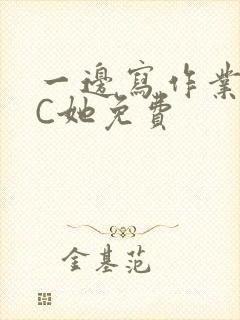 一邊寫作業
C她免費
金基范